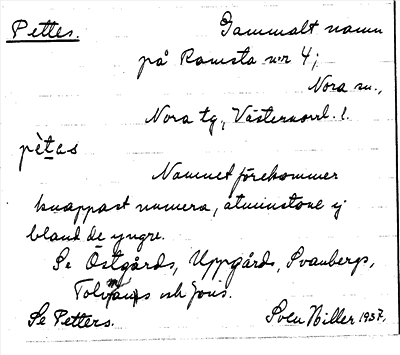 Pettes. Gammalt namn
på Ramsta n:r 4;
Nora sn.,
Nora tg, Västernorrl. l.
pètas
Namnet förekommer
knappast numera, åtminstone ej
bland de yngre.
Se Östgårds, Uppgårds, Svanbergs,
och Joris.
Se Petters. Sven Hiller 1937.